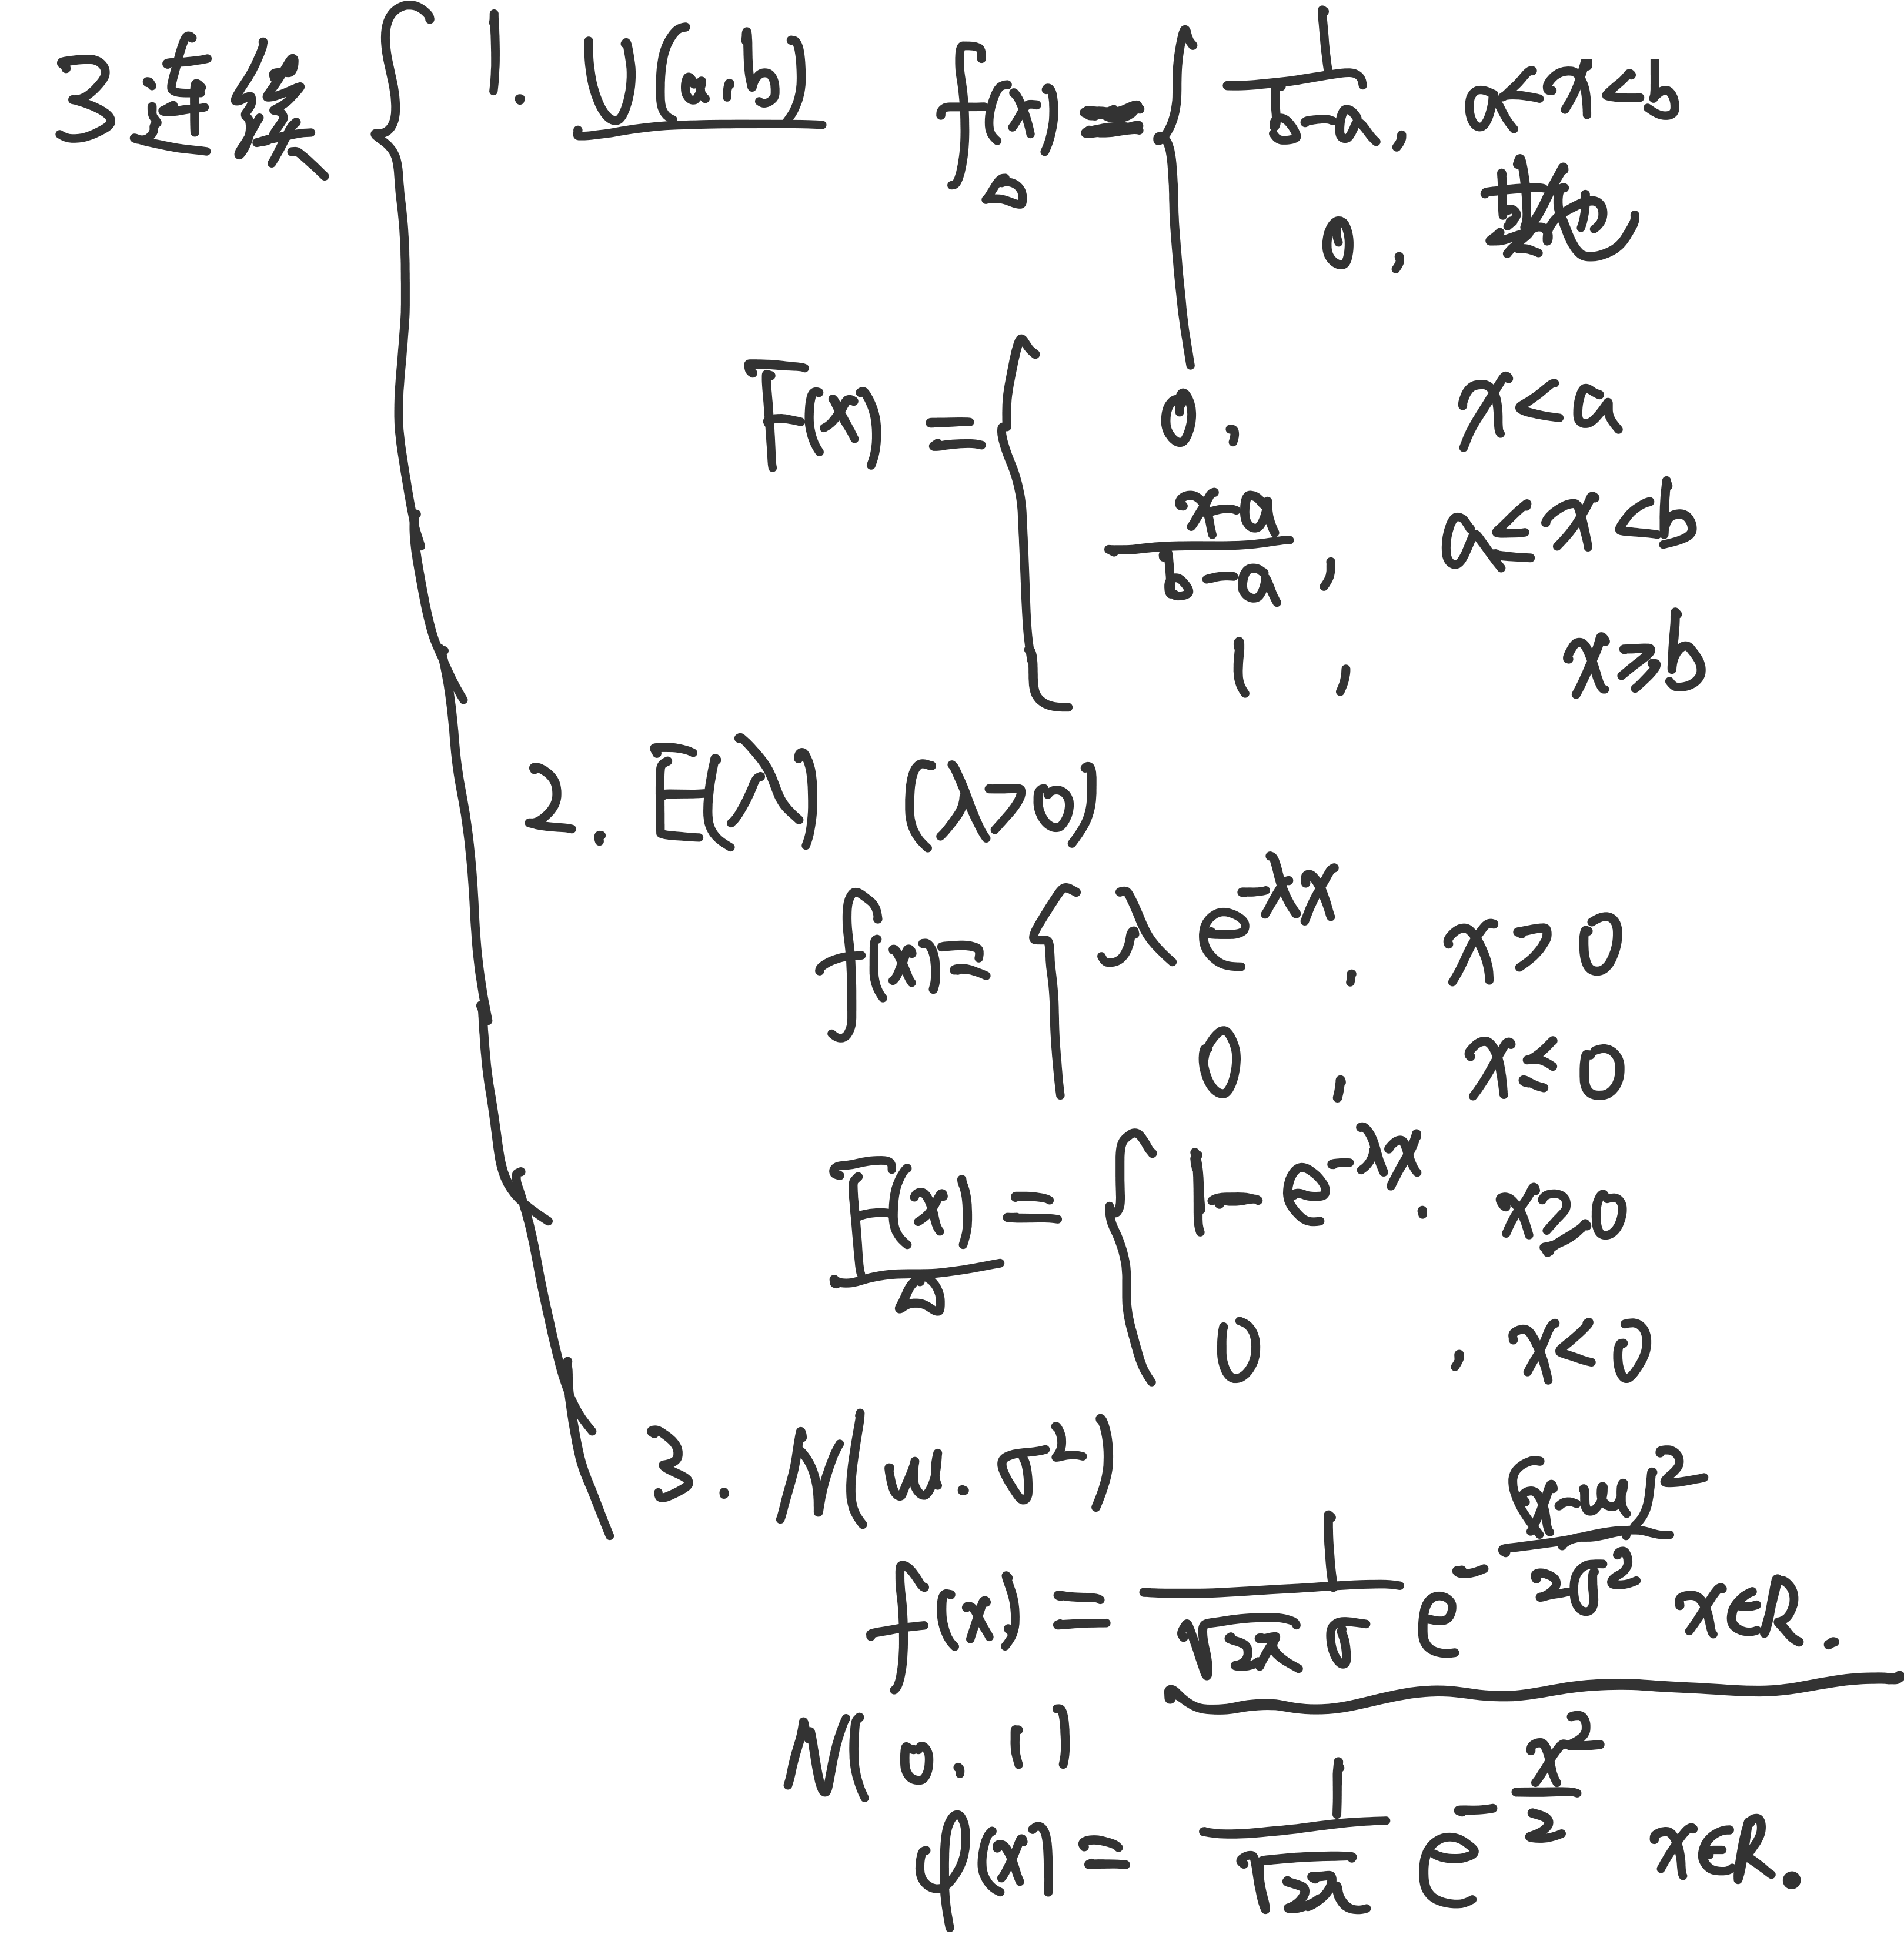 3连续 { 1. U(a.b) f(x) = { 1/(b-a), a<x<b
0, 其他
F(x) = { 0, x<a
(x-a)/(b-a), a≤x<b
1, x≥b
2. E(λ) (λ>0)
f(x) = { λe^(-λx), x>0
0, x≤0
F(x) = { 1-e^(-λx). x≥0
0, x<0
3. N(u. σ²)
f(x) = 1/(√(2π) σ) e^(-(x-u)²/(2σ²)) x∈R.
N(0. 1)
φ(x) = 1/√(2π) e^(-x²/2) x∈R.